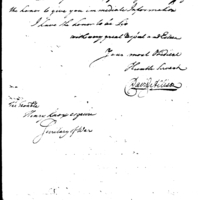 the honor to give you immediate Information
I have the honor to be Sir
with very great Respect and Esteem
Your most Obedient
Humble Servant
The Honble
Henry Knox Esquire
Secretary of War